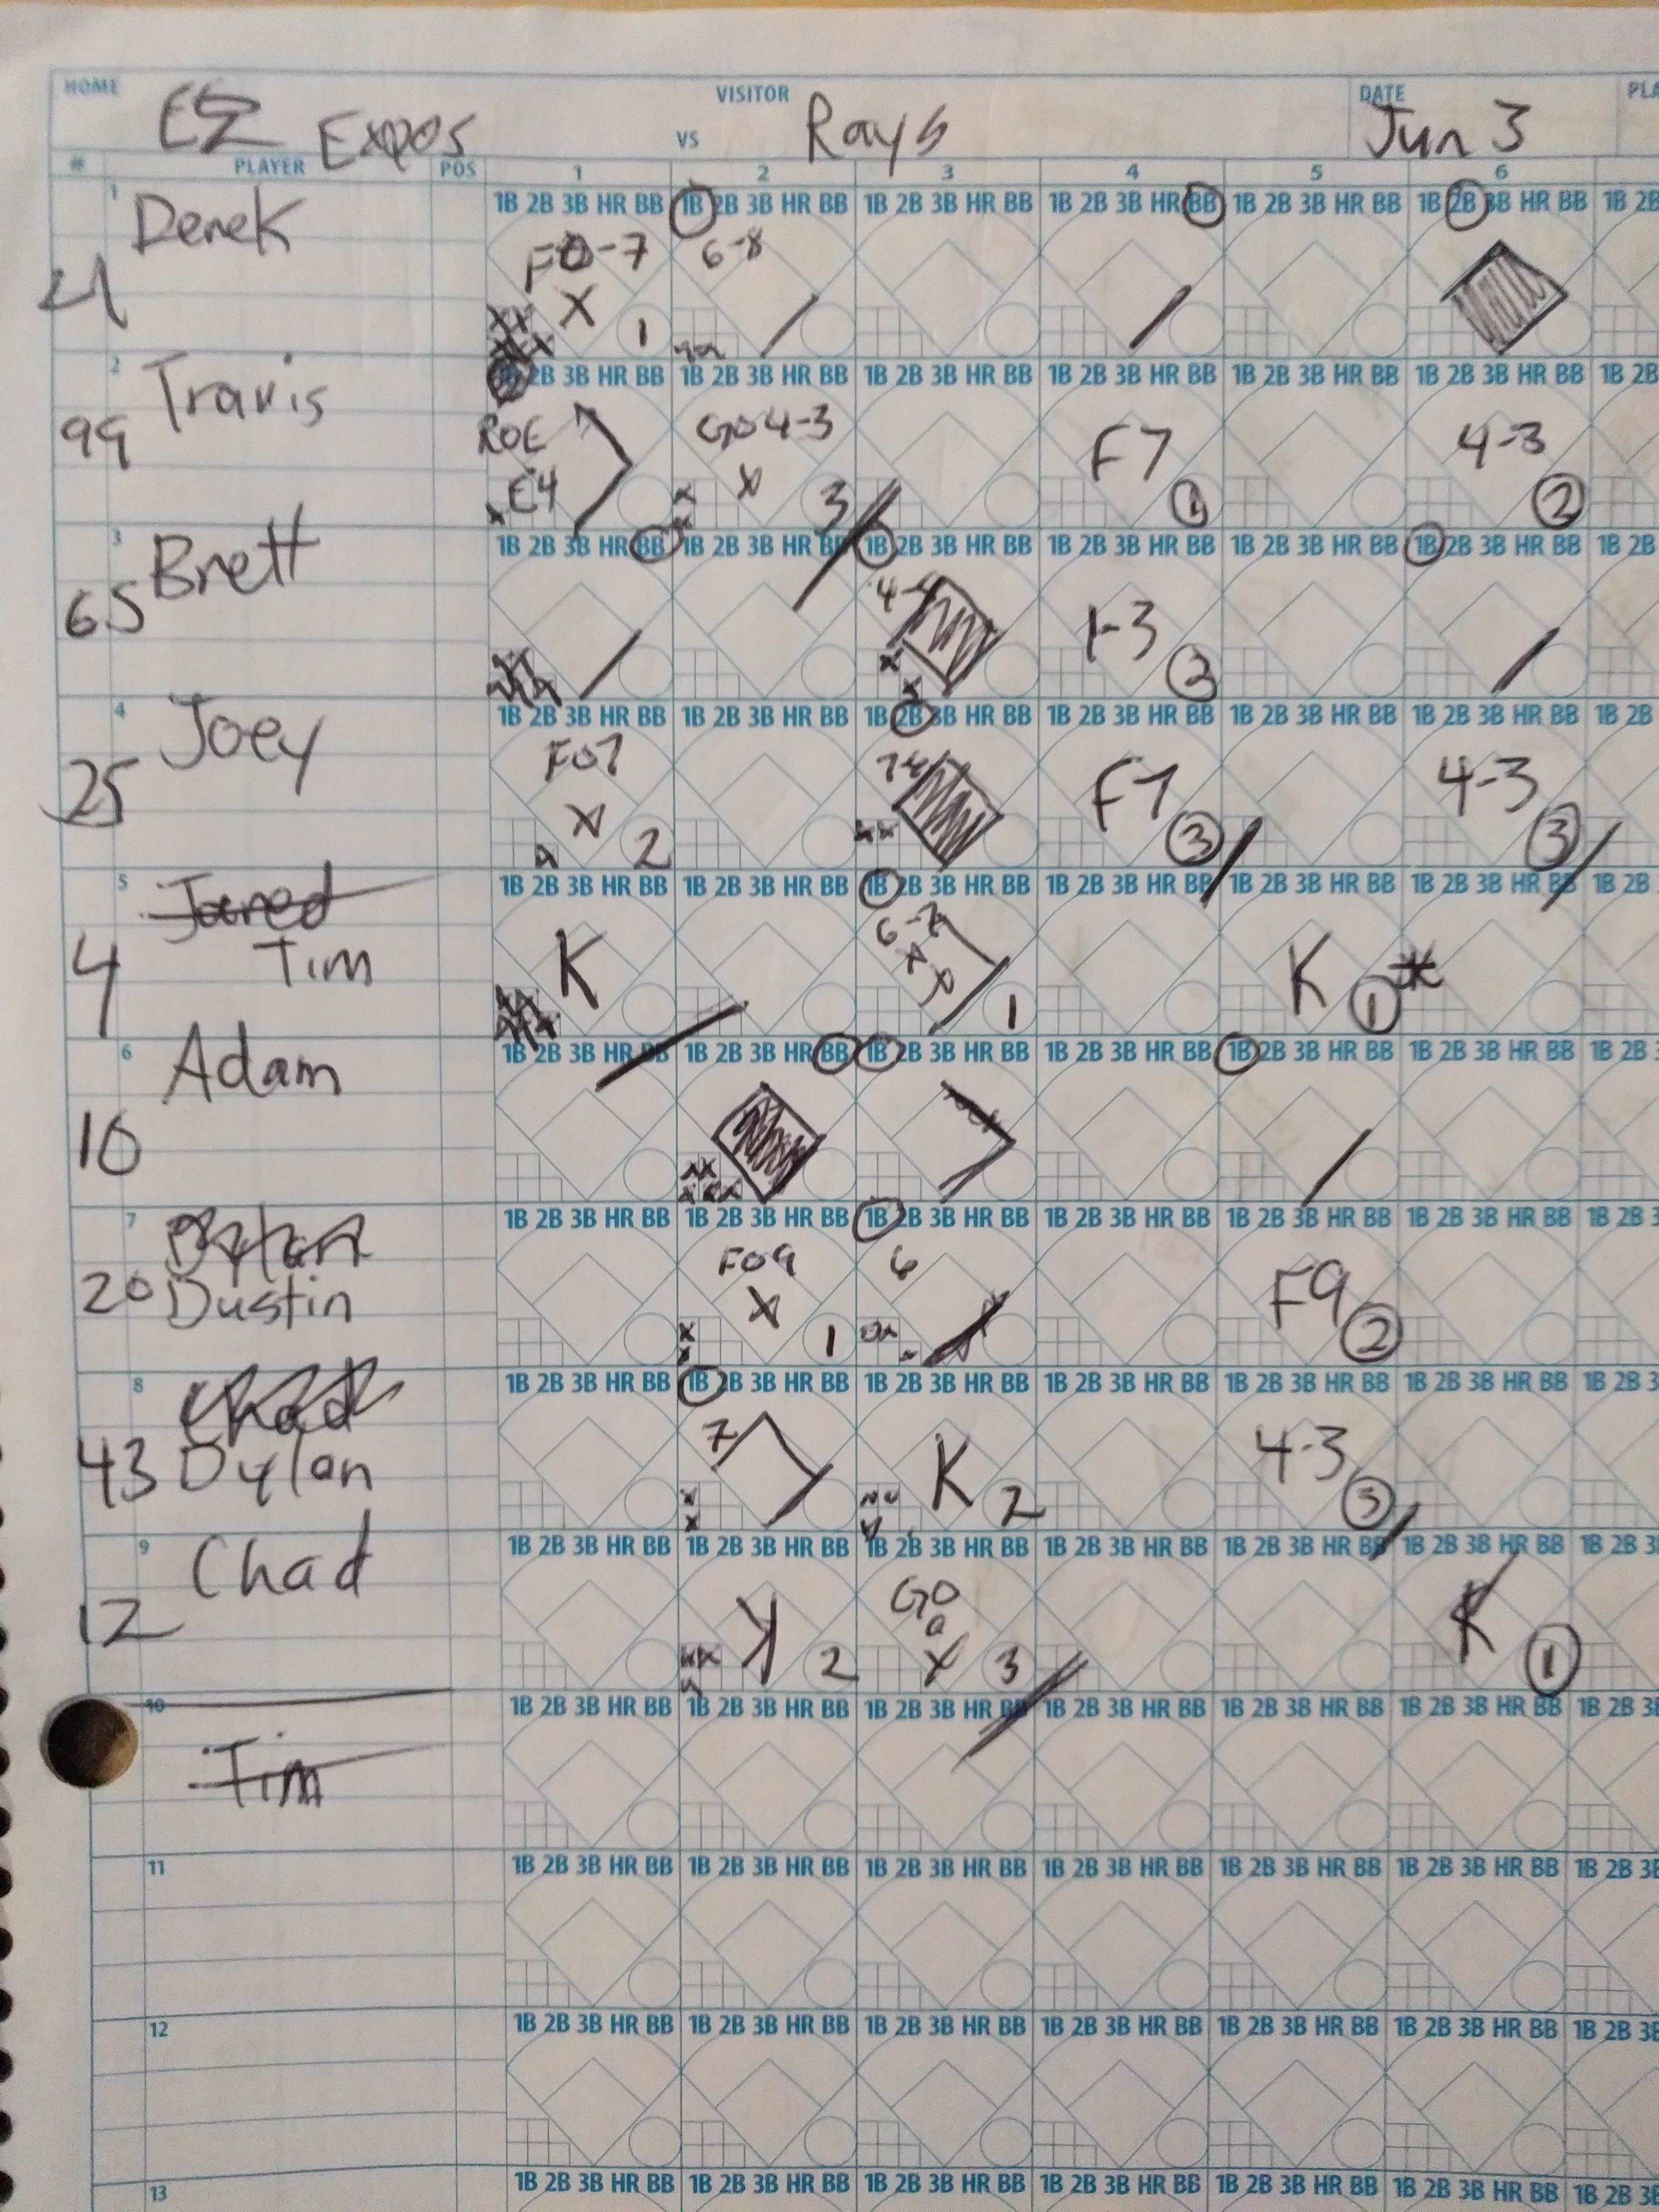 HOME VISITOR DATE
EZ Expos VS Rays Jun 3
# PLAYER POS 1 2 3 4 5 6
1 1B 2B 3B HR BB 1B 2B 3B HR BB 1B 2B 3B HR BB 1B 2B 3B HR BB 1B 2B 3B HR BB 1B 2B 3B HR BB 1B 2B
Derek
FO-7 6-8
21 X 1
2 1B 2B 3B HR BB 1B 2B 3B HR BB 1B 2B 3B HR BB 1B 2B 3B HR BB 1B 2B 3B HR BB 1B 2B
Travis
99 ROE GO 4-3 F7 4-3
E4 X 3 1 2
3 1B 2B 3B HR BB 1B 2B 3B HR BB 1B 2B 3B HR BB 1B 2B 3B HR BB 1B 2B 3B HR BB 1B 2B 3B HR BB 1B 2B
Brett
65 1-3
2
4 1B 2B 3B HR BB 1B 2B 3B HR BB 1B 2B 3B HR BB 1B 2B 3B HR BB 1B 2B 3B HR BB 1B 2B 3B HR BB 1B 2B
Joey
25 FO7 F7 4-3
X 2 3 3
5 1B 2B 3B HR BB 1B 2B 3B HR BB 1B 2B 3B HR BB 1B 2B 3B HR BB 1B 2B 3B HR BB 1B 2B 3B HR BB 1B 2B
Jared
4 Tim K K
1 1 *
6 1B 2B 3B HR BB 1B 2B 3B HR BB 1B 2B 3B HR BB 1B 2B 3B HR BB 1B 2B 3B HR BB 1B 2B 3B HR BB 1B 2B
Adam
10
7 1B 2B 3B HR BB 1B 2B 3B HR BB 1B 2B 3B HR BB 1B 2B 3B HR BB 1B 2B 3B HR BB 1B 2B 3B HR BB 1B 2B 3
Dylan
20 Dustin FO9 6 F9
X 1 2
8 1B 2B 3B HR BB 1B 2B 3B HR BB 1B 2B 3B HR BB 1B 2B 3B HR BB 1B 2B 3B HR BB 1B 2B 3B HR BB 1B 2B 3
Chad
43 Dylan 7 K 4-3
2 3
9 1B 2B 3B HR BB 1B 2B 3B HR BB 1B 2B 3B HR BB 1B 2B 3B HR BB 1B 2B 3B HR BB 1B 2B 3B HR BB 1B 2B 3
Chad
12 K GO K
2 X 3 1
10 1B 2B 3B HR BB 1B 2B 3B HR BB 1B 2B 3B HR BB 1B 2B 3B HR BB 1B 2B 3B HR BB 1B 2B 3B HR BB 1B 2B 3
Tim
11 1B 2B 3B HR BB 1B 2B 3B HR BB 1B 2B 3B HR BB 1B 2B 3B HR BB 1B 2B 3B HR BB 1B 2B 3B HR BB 1B 2B 3
12 1B 2B 3B HR BB 1B 2B 3B HR BB 1B 2B 3B HR BB 1B 2B 3B HR BB 1B 2B 3B HR BB 1B 2B 3B HR BB 1B 2B 3
13 1B 2B 3B HR BB 1B 2B 3B HR BB 1B 2B 3B HR BB 1B 2B 3B HR BB 1B 2B 3B HR BB 1B 2B 3B HR BB 1B 2B 3